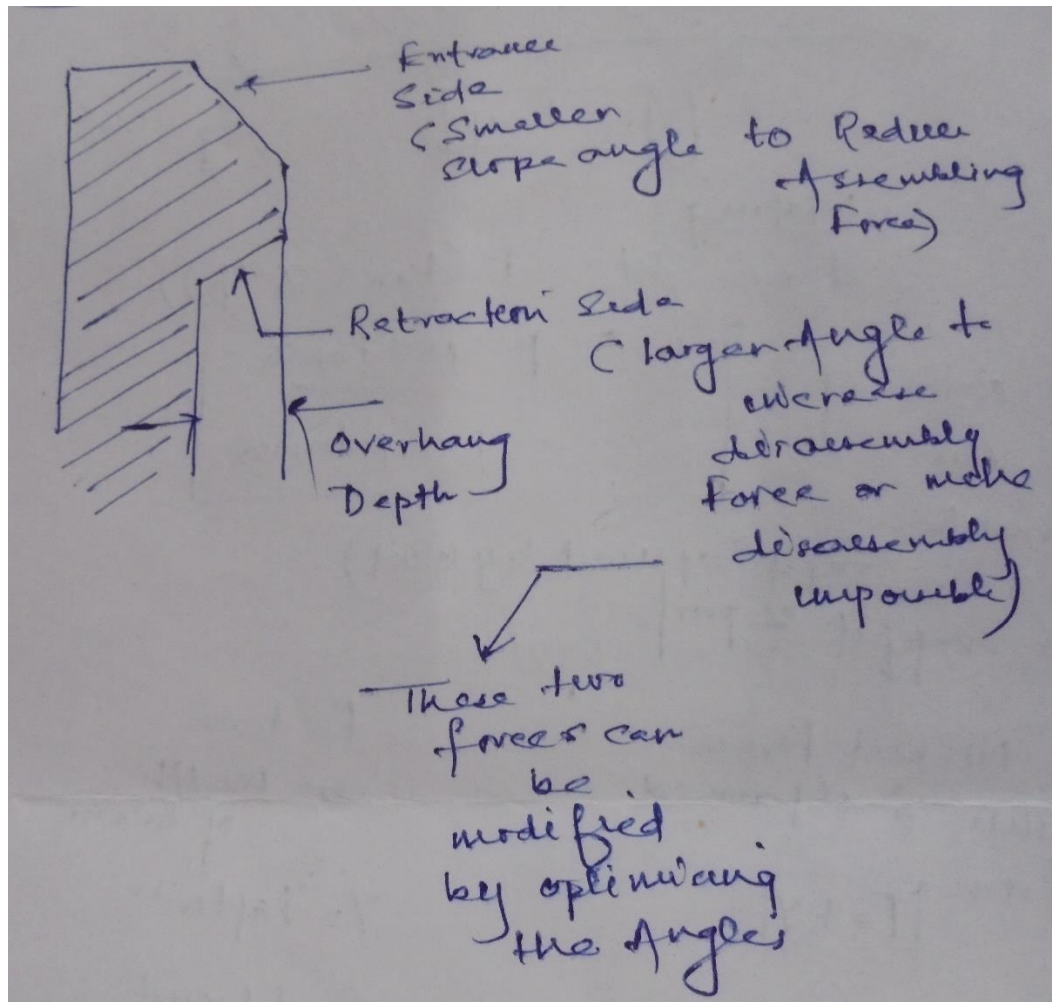 Entrance
Side
(Smaller
slope angle to Reduce
Assembling
Force)
Retraction Side
(larger Angle to
increase
disassembly
Force or make
disassembly
impossible)
Overhang
Depth
These two
forces can
be
modified
by optimizing
the Angles